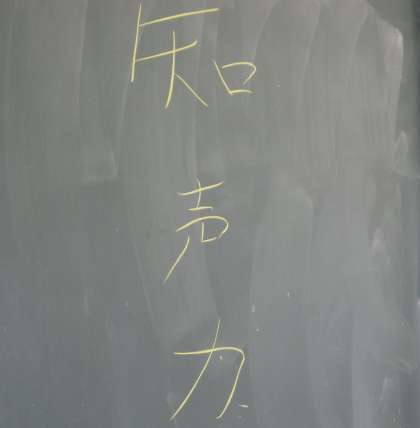 知声力